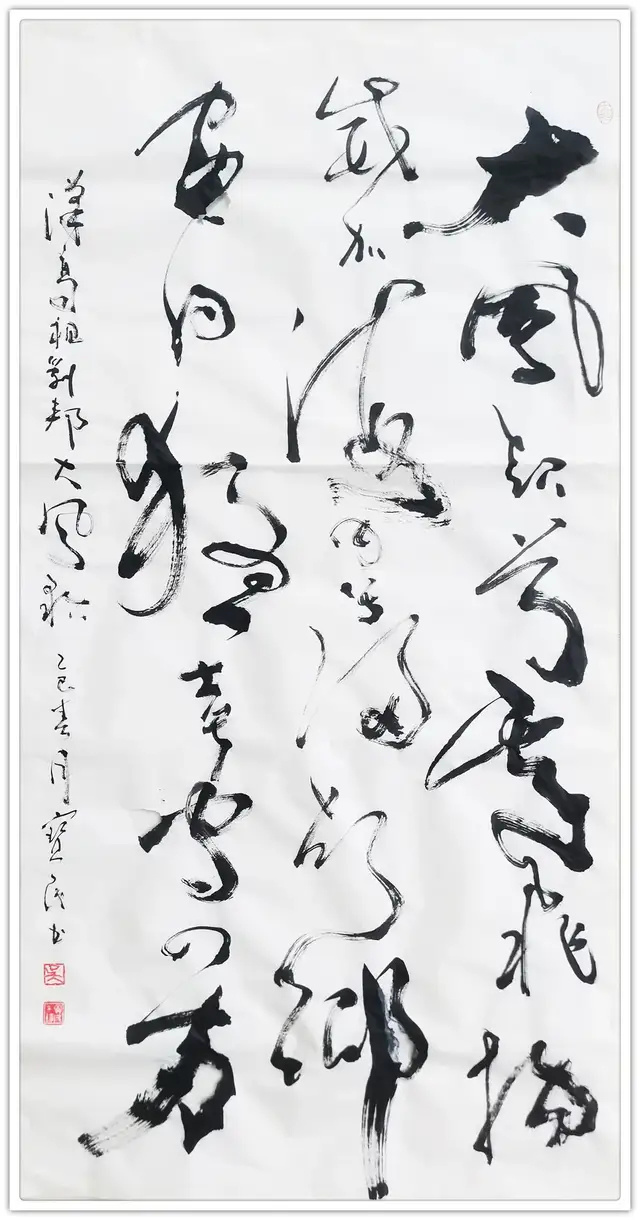 大風起兮雲飛揚
威加海内兮歸故鄉
安得猛士兮守四方
漢高祖劉邦大風歌 乙巳春月寶民書
吳